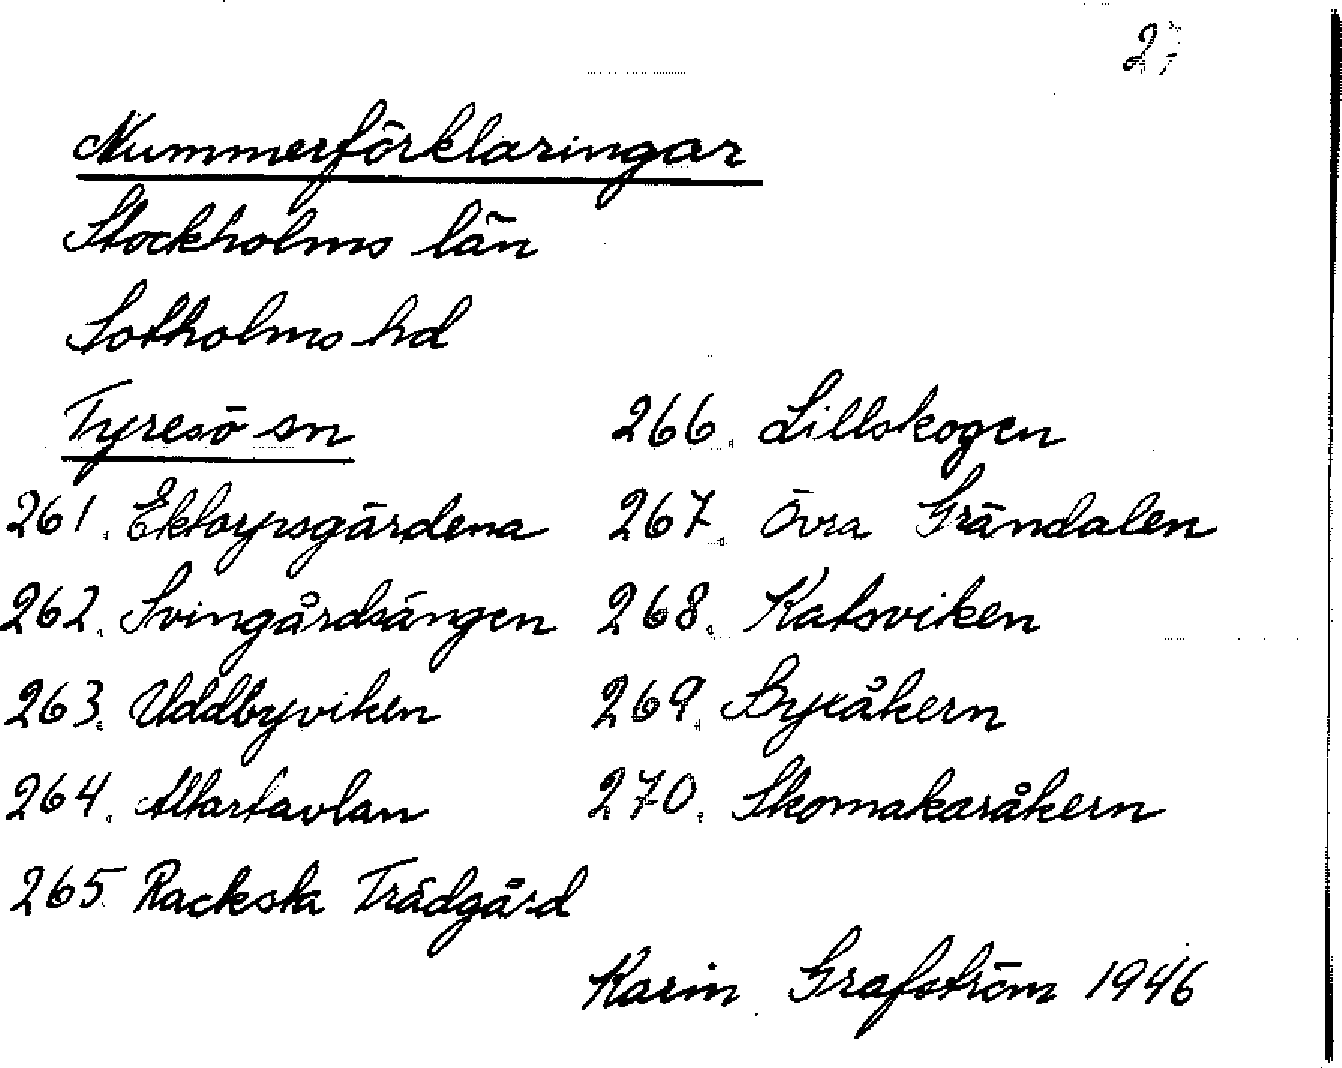 27
Nummerförklaringar
Stockholms län
Sotholms hd
Tyresö sn
261. Ektorpsgärdena
262. Svingårdsängen
263. Uddbyviken
264. Altartavlan
265 Rackska Trädgård
266. Lillskogen
267. Övra Grändalen
268. Katsviken
269. Byxåkern
270. Skomakaråkern
Karin Grafström 1946